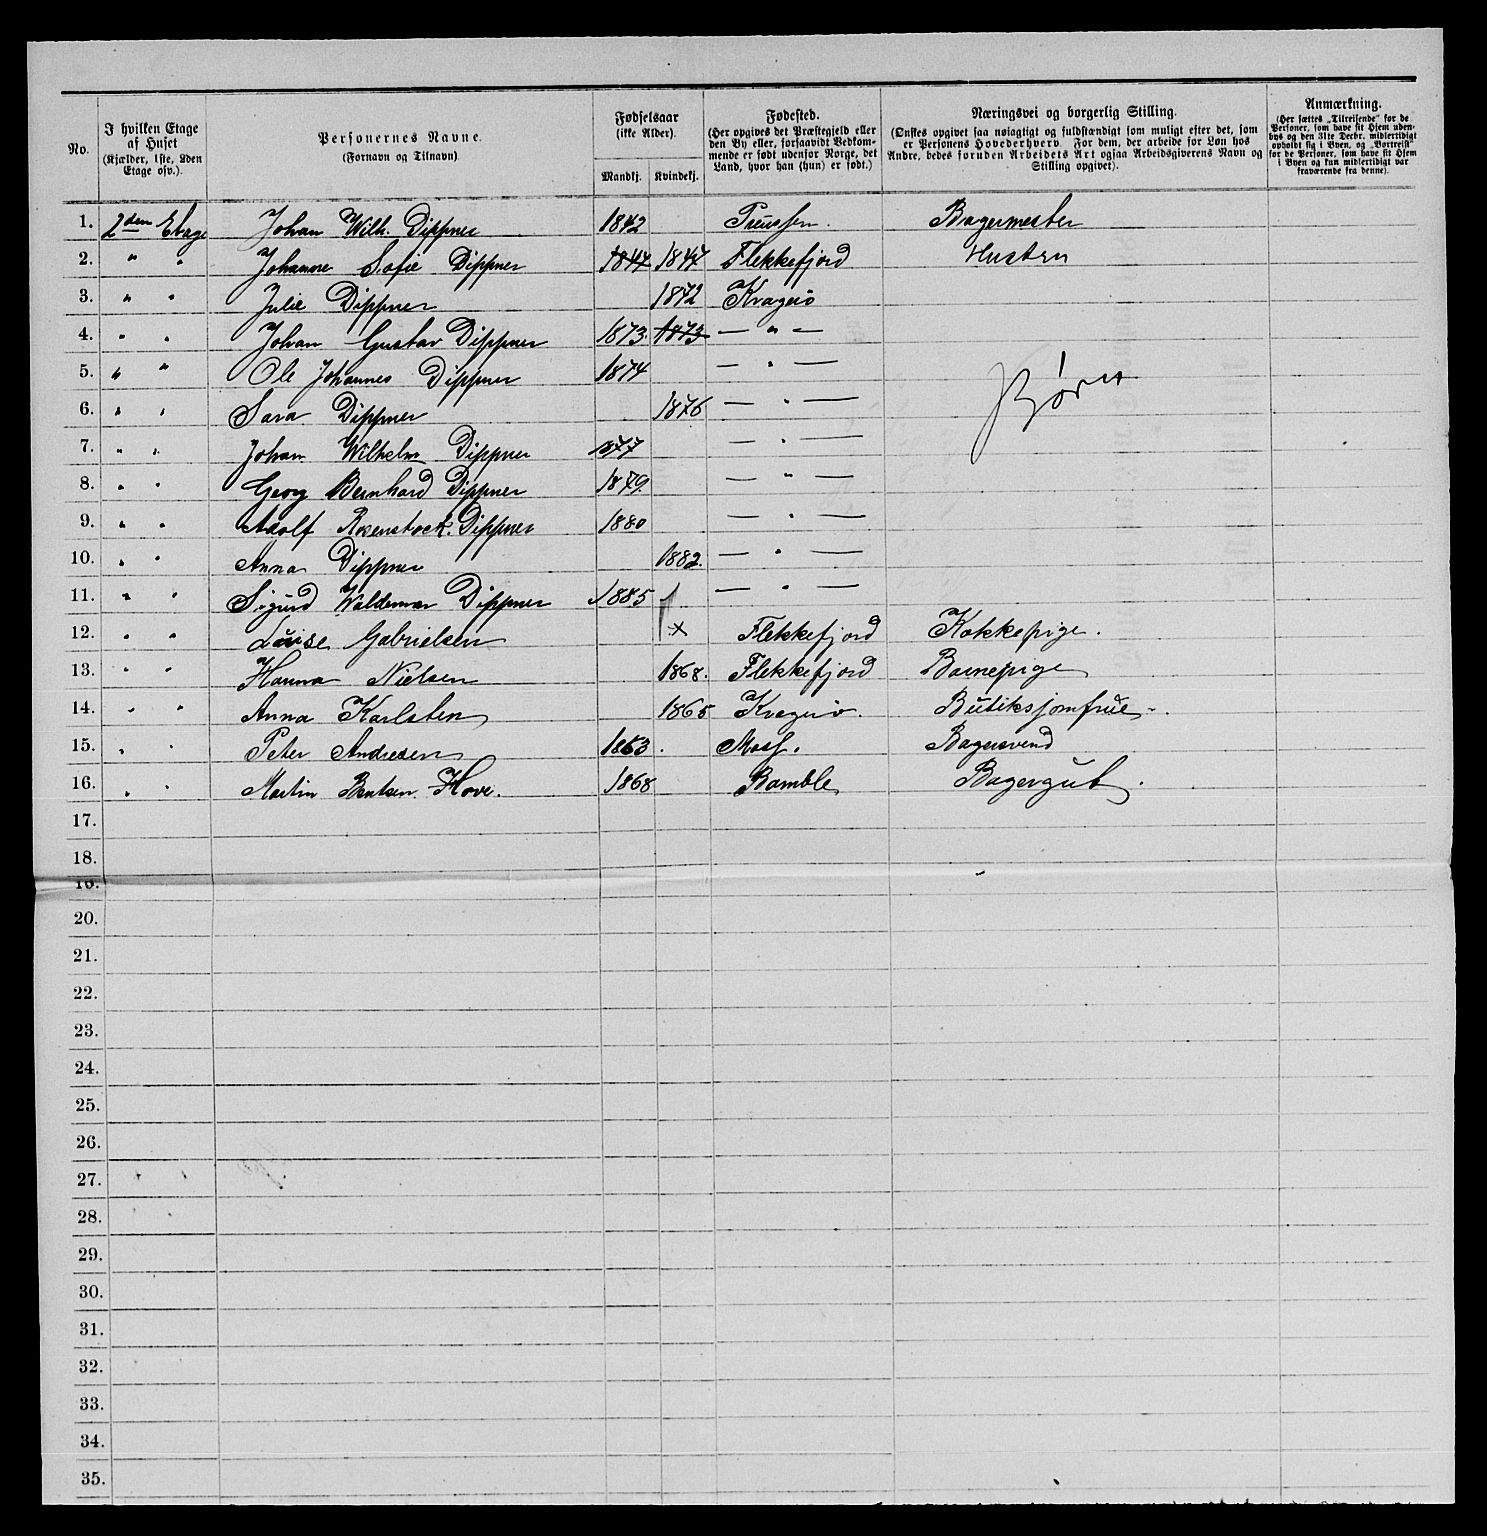 No.
I hvilken Etage af Huset (Kjælder, 1ste, 2den Etage osv.).
Personernes Navne. (Fornavn og Tilnavn).
Fødselsaar (ikke Alder).
Mandkj. Kvindekj.
Fødested. (Her opgives det Præstegjeld eller den By eller, forsaavidt Vedkommende er født udenfor Norge, det Land, hvor han (hun) er født.)
Næringsvei og borgerlig Stilling. (Ønskes opgivet saa nøiagtigt og fuldstændigt som muligt efter det, som er Personens Hovederhverv. For dem, der arbeide for Løn hos Andre, bedes foruden Arbeidets Art ogsaa Arbeidsgiverens Navn og Stilling opgivet).
Anmærkning. (Her sættes „Tilreisende“ for de Personer, som have sit Hjem udenbys og den 31te Decbr. midlertidigt opholdt sig i Byen, og „Bortreist“ for de Personer, som have sit Hjem i Byen og kun midlertidigt var fraværende fra denne).
1. 2den Etage Johan Wilh. Dippner 1842 Preussen. Bagermester
2. " " Johanne Sofie Dippner 1844 1844 Flekkefjord Hustru
3. " " Julie Dippner 1872 Kragerö
4. " " Johan Gustav Dippner 1873. 1873 — " —
5. " " Ole Johannes Dippner 1874 — " — Børn
6. " " Sara Dippner 1876 — " —
7. " " Johan Wilhelm Dippner 1877 — " —
8. " " Georg Bernhard Dippner 1879. — " —
9. " " Adolf Rosenstock. Dippner 1880 — " —
10. " " Anna Dippner 1882. — " —
11. " " Sigurd Waldemar Dippner 1885 — " —
12. " " Luise Gabrielsen × Flekkefjord Kokkepige.
13. " " Hanna Nielsen 1868. Flekkefjord Barnepige
14. " " Anna Karlsten 1865 Kragerö. Butiksjomfrue
15. " " Peter Andresen 1863. Moss. Bagersvend
16. " " Martin Bentsen Hove. 1868 Bamble Bagergut.
17.
18.
19.
20.
21.
22.
23.
24.
25.
26.
27.
28.
29.
30.
31.
32.
33.
34.
35.